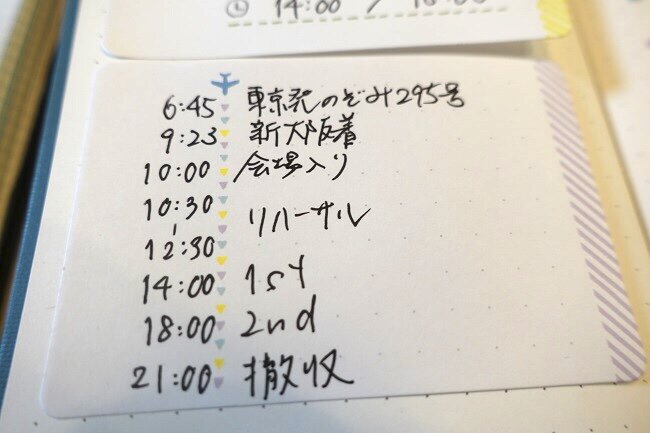 14:00 /
6:45 東京発のぞみ295号
9:23 新大阪着
10:00 会場入り
10:30
| リハーサル
12:30
14:00 1st
18:00 2nd
21:00 撤収